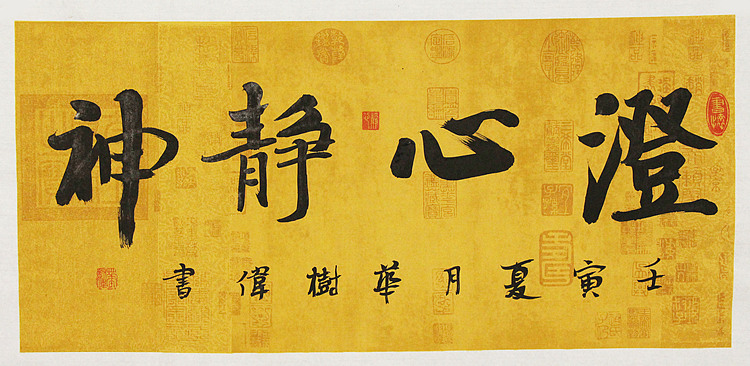 澄心静神
壬寅夏月華樹偉書